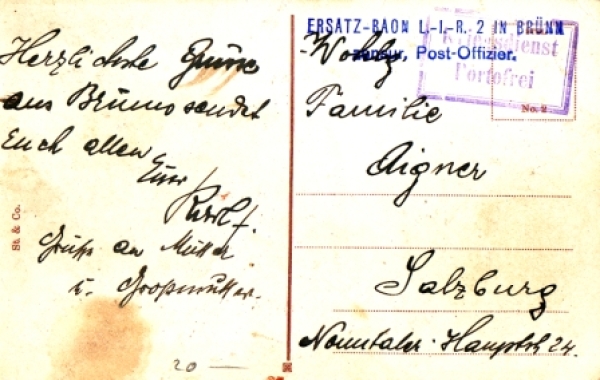 Herzlichste Grüsse
aus Brünn sendet
Euch allen
Euer
Karl.
Grüsse an Mutter
u. Großmutter.
20 —
St. & Co.
ERSATZ-BAON L.-I.-R. 2 IN BRÜNN
Zensur, Post-Offizier.
Kriegsdienst
Portofrei
No. 2
Wohlg.
Familie
Aigner
Salzburg
Nonntaler-Hauptstr 24.